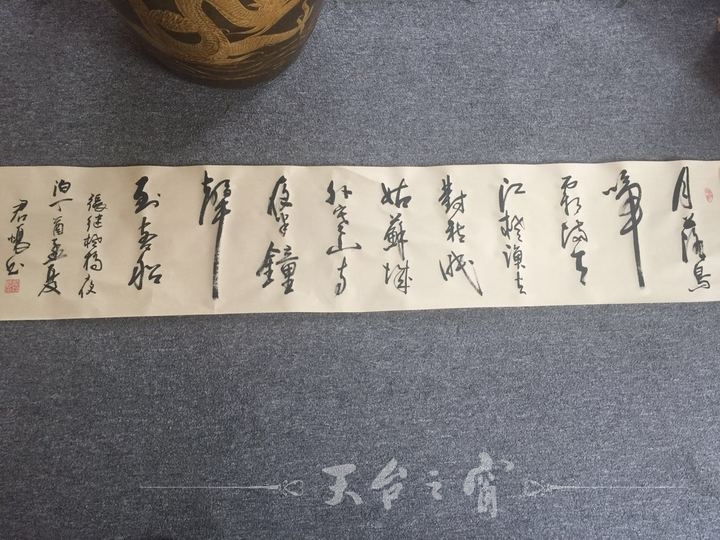 月落烏
啼
霜滿天
江楓漁火
對愁眠
姑蘇城
外寒山寺
夜半鐘
聲
到客船
張继楓橋夜
泊丁酉孟夏
君书
天台之窗